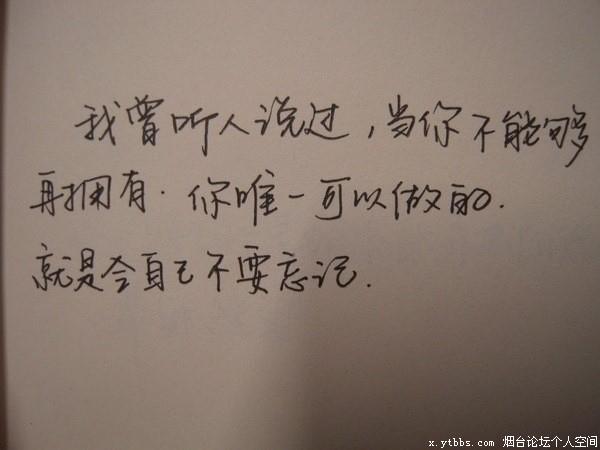 我曾听人说过，当你不能够
再拥有．你唯一可以做的．
就是令自己不要忘记．
x.ytbbs.com 烟台论坛个人空间